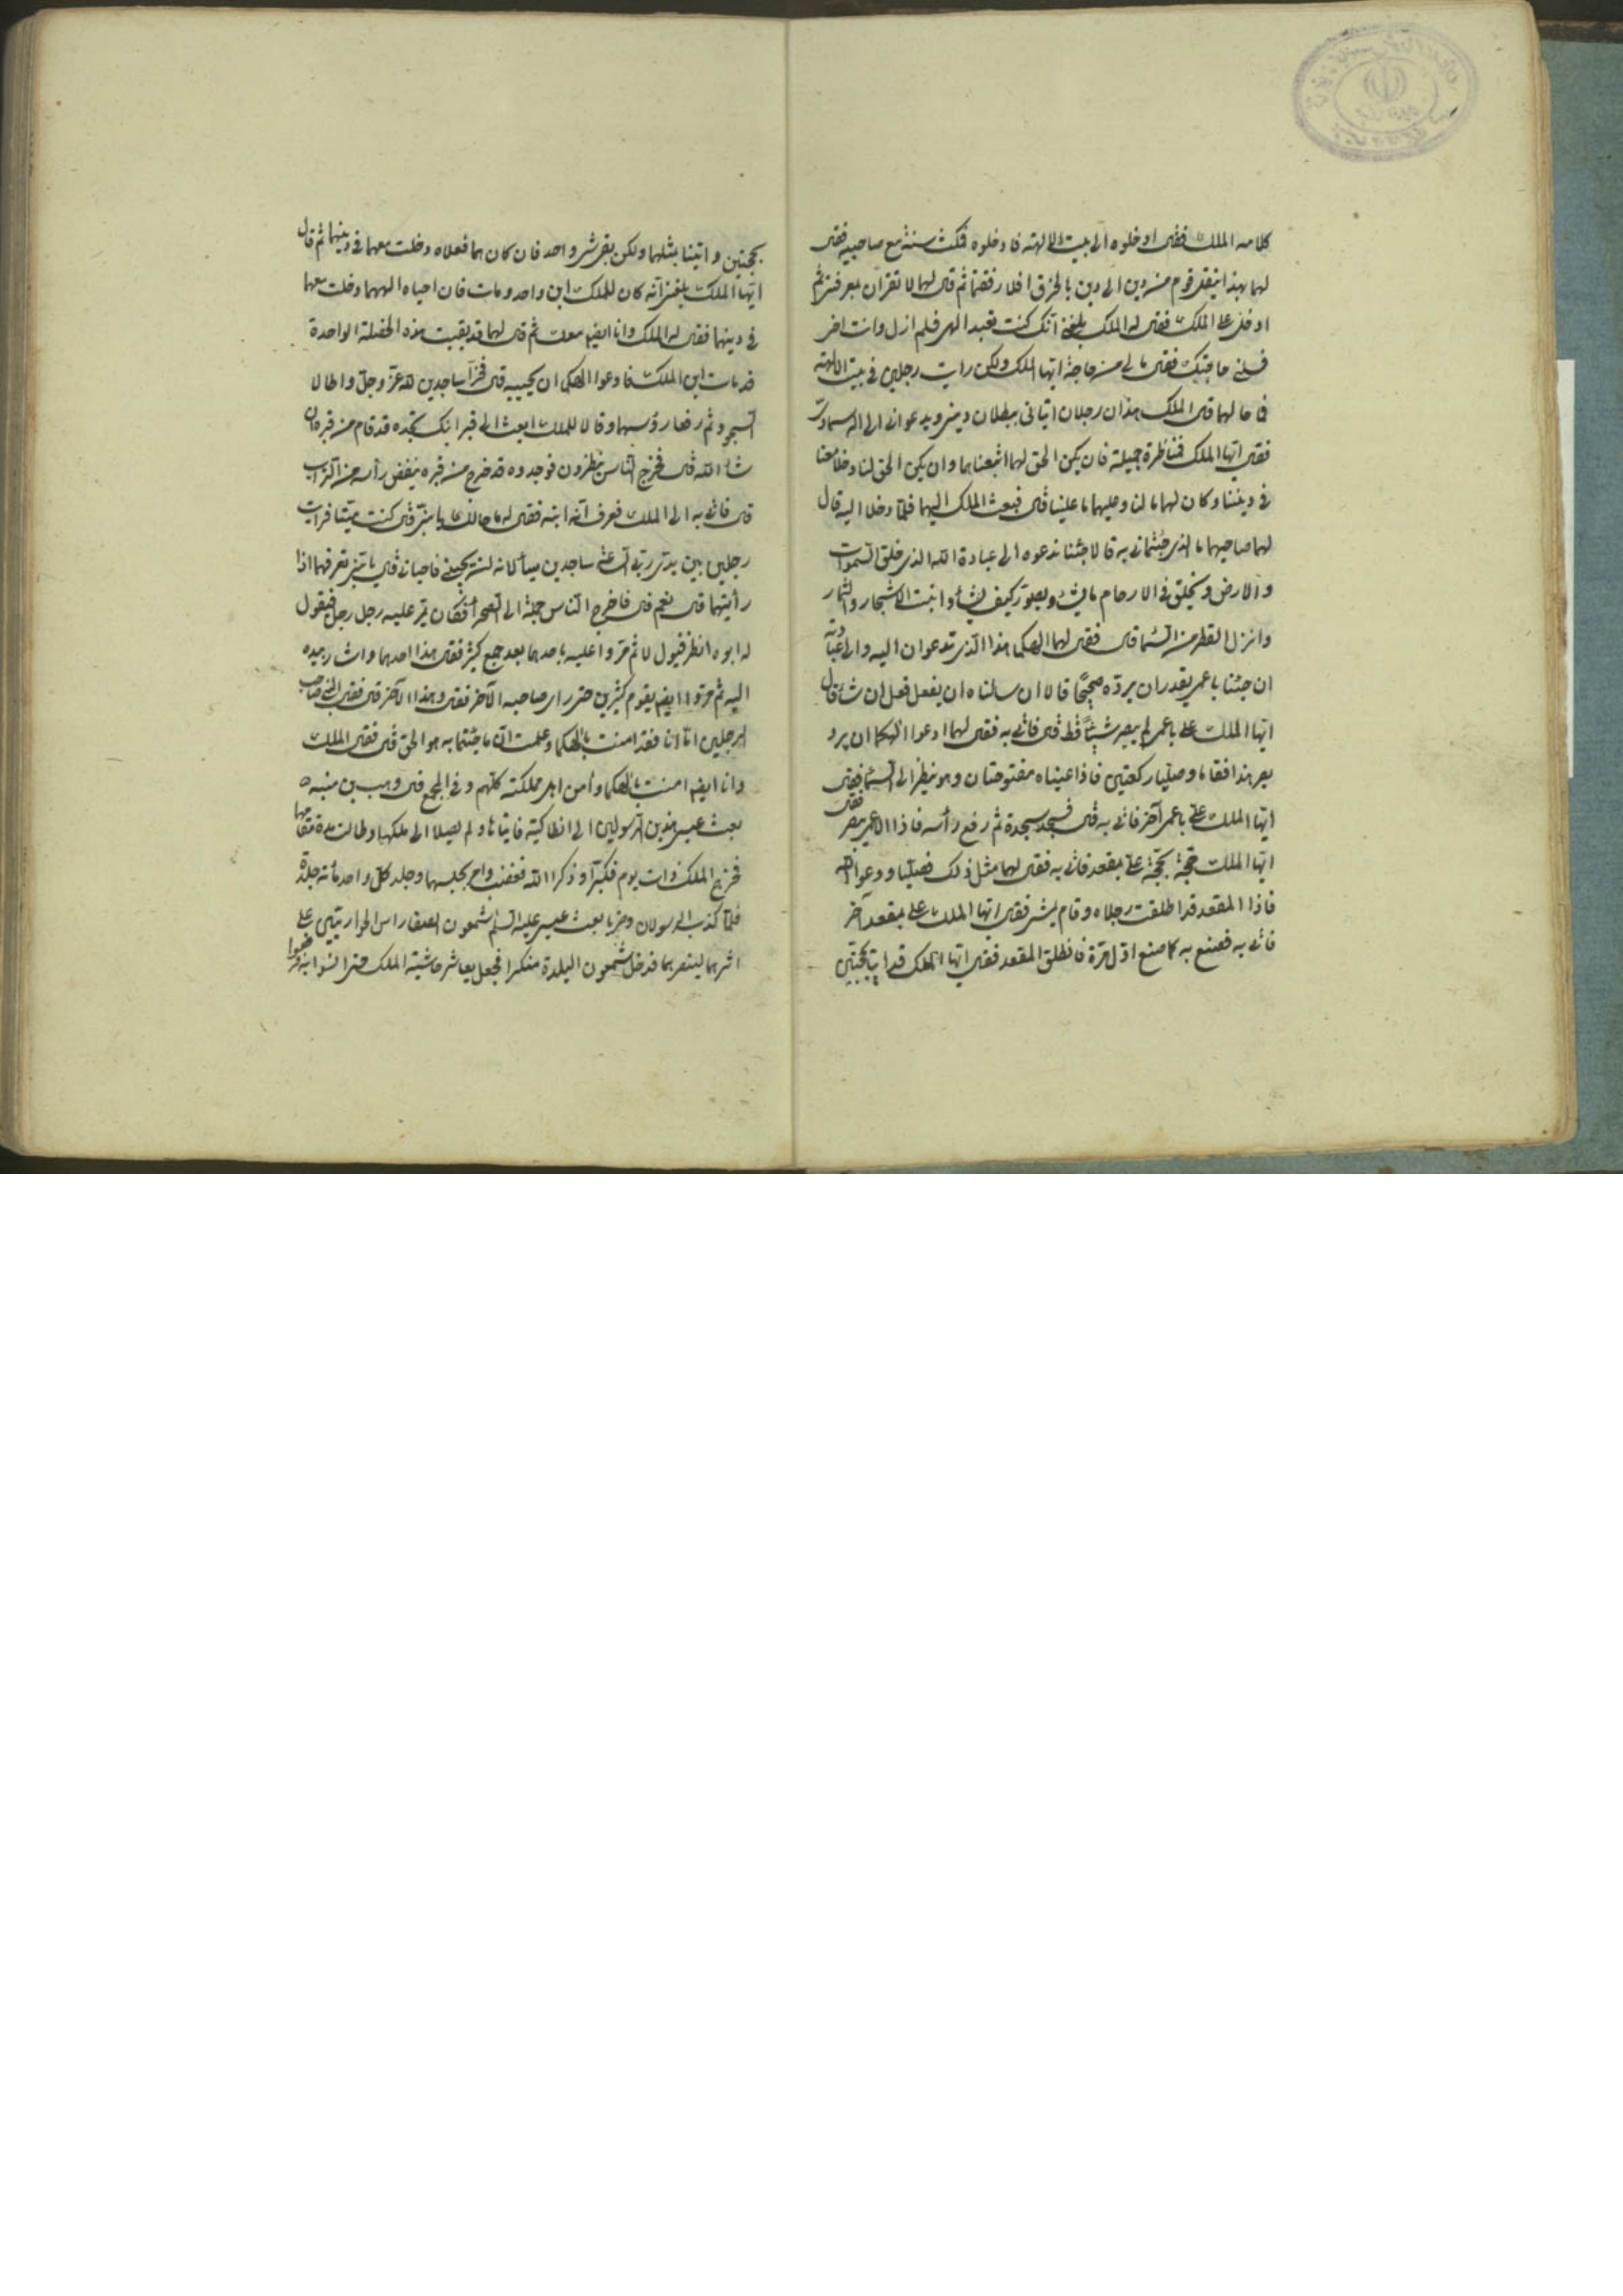 كلامه الملك فقى ادخلوه الى بيت الالهة فادخلوه فمكث سنة مع صاحبيه فقى
لهما بهذا ينقل قوم من دين الى دين بالخرق افلا رفقتما ثم قى لهما لا تقران بمعرفتى ثم
ادخل على الملك فقى له الملك بلغنى انك كنت تعبد الهى فلم ازل وانت اخى
فسلنى حاجتك فقى مالى من حاجة ايها الملك ولكن رايت رجلين فى بيت الالهة
فما حالهما قى الملك هذان رجلان اتيانى ببطلان دينى ويدعوانى الى اله سماوى
فقى ايها الملك فمناظرة جميلة فان يكن الحق لهما اتبعناهما وان يكن الحق لنا دخلا معنا
فى ديننا وكان لهما ما لنا وعليهما ما علينا قى فبعث الملك اليهما فلما دخلا اليه قال
لهما صاحبهما ما الذى جئتمانى به قالا جئنا ندعوه الى عبادة الله الذى خلق السموات
والارض ويخلق فى الارحام ما يشاء ويصور كيف يشاء وانبت الاشجار والثمار
وانزل القطر من السماء قى فقى لهما الهكما هذا الذى تدعوان اليه والى عبادته
ان جئنا باعمى يقدر ان يرده صحيحا قالا ان سالناه ان يفعل فعل ان شاء قال
ايها الملك على باعمى لم يبصر شيئا قط قى فاتى به فقى لهما ادعوا الهكما ان يرد
بصر هذا فقاما وصليا ركعتين فاذا عيناه مفتوحتان وهو ينظر الى السماء فقى
ايها الملك على باعمى آخر فاتى به قى فسجد سجدة ثم رفع رأسه فاذا الاعمى بصير فقى
ايها الملك حجة بحجة على بمقعد فاتى به فقى لهما مثل ذلك فصليا ودعوا الله
فاذا المقعد قد اطلقت رجلاه وقام يمشى فقى ايها الملك على بمقعد آخر
فاتى به فصنع به كما صنع اول مرة فانطلق المقعد فقى ايها الملك قد اتيا بحجتين
بحجتين واتينا بمثلهما ولكن بقى شى واحد فان كان هما فعلاه دخلت معهما فى دينهما ثم قال
ايها الملك بلغنى انه كان للملك ابن واحد ومات فان احياه الههما دخلت معهما
فى دينهما فقى له الملك وانا ايضا معك ثم قى لهما قد بقيت هذه الخصلة الواحدة
قد مات ابن الملك فادعوا الهكما ان يحييه قى فخرا ساجدين لله عز وجل واطالا
السجود ثم رفعا رؤسهما وقالا للملك ابعث الى قبر ابنك تجده قد قام من قبره ان
شاء الله قى فخرج الناس ينظرون فوجدوه قد خرج من قبره ينفض رأسه من التراب
قى فاتى به الى الملك فعرف انه ابنه فقى له ما حالك يا بنى قى كنت ميتا فرايت
رجلين بين يدى ربى الساعة ساجدين يسألانه ان يحيينى فاحيانى قى يا بنى تعرفهما اذا
رأيتهما قى نعم قى فاخرج الناس جملة الى الصحرا فكان يمر عليه رجل رجل فيقول
له ابوه انظر فيقول لا ثم مروا عليه باحدهما بعد جمع كثير فقى هذا احدهما واشار بيده
اليه ثم مروا ايضا بقوم كثيرين حتى راى صاحبه الآخر فقى وهذا الآخر قى فقى النبى صاحب
الرجلين اما انا فقد امنت بالهكما وعلمت ان ما جئتما به هو الحق قى فقى الملك
وانا ايضا امنت بالهكما وأمن اهل مملكته كلهم وفى المجمع قى وهب بن منبه
بعث عيسى هذين الرسولين الى انطاكية فاتياها ولم يصلا الى ملكها وطالت مدة مقامهما
فخرج الملك ذات يوم فكبرا وذكرا الله فغضب وامر بحبسهما وجلد كل واحد مائة جلدة
فلما كذب الرسولان وضربا بعث عيسى عليه السلم شمعون الصفا راس الحواريين على
اثرهما لينصرهما فدخل شمعون البلدة منكرا فجعل يعاشر حاشية الملك حتى انسوا به